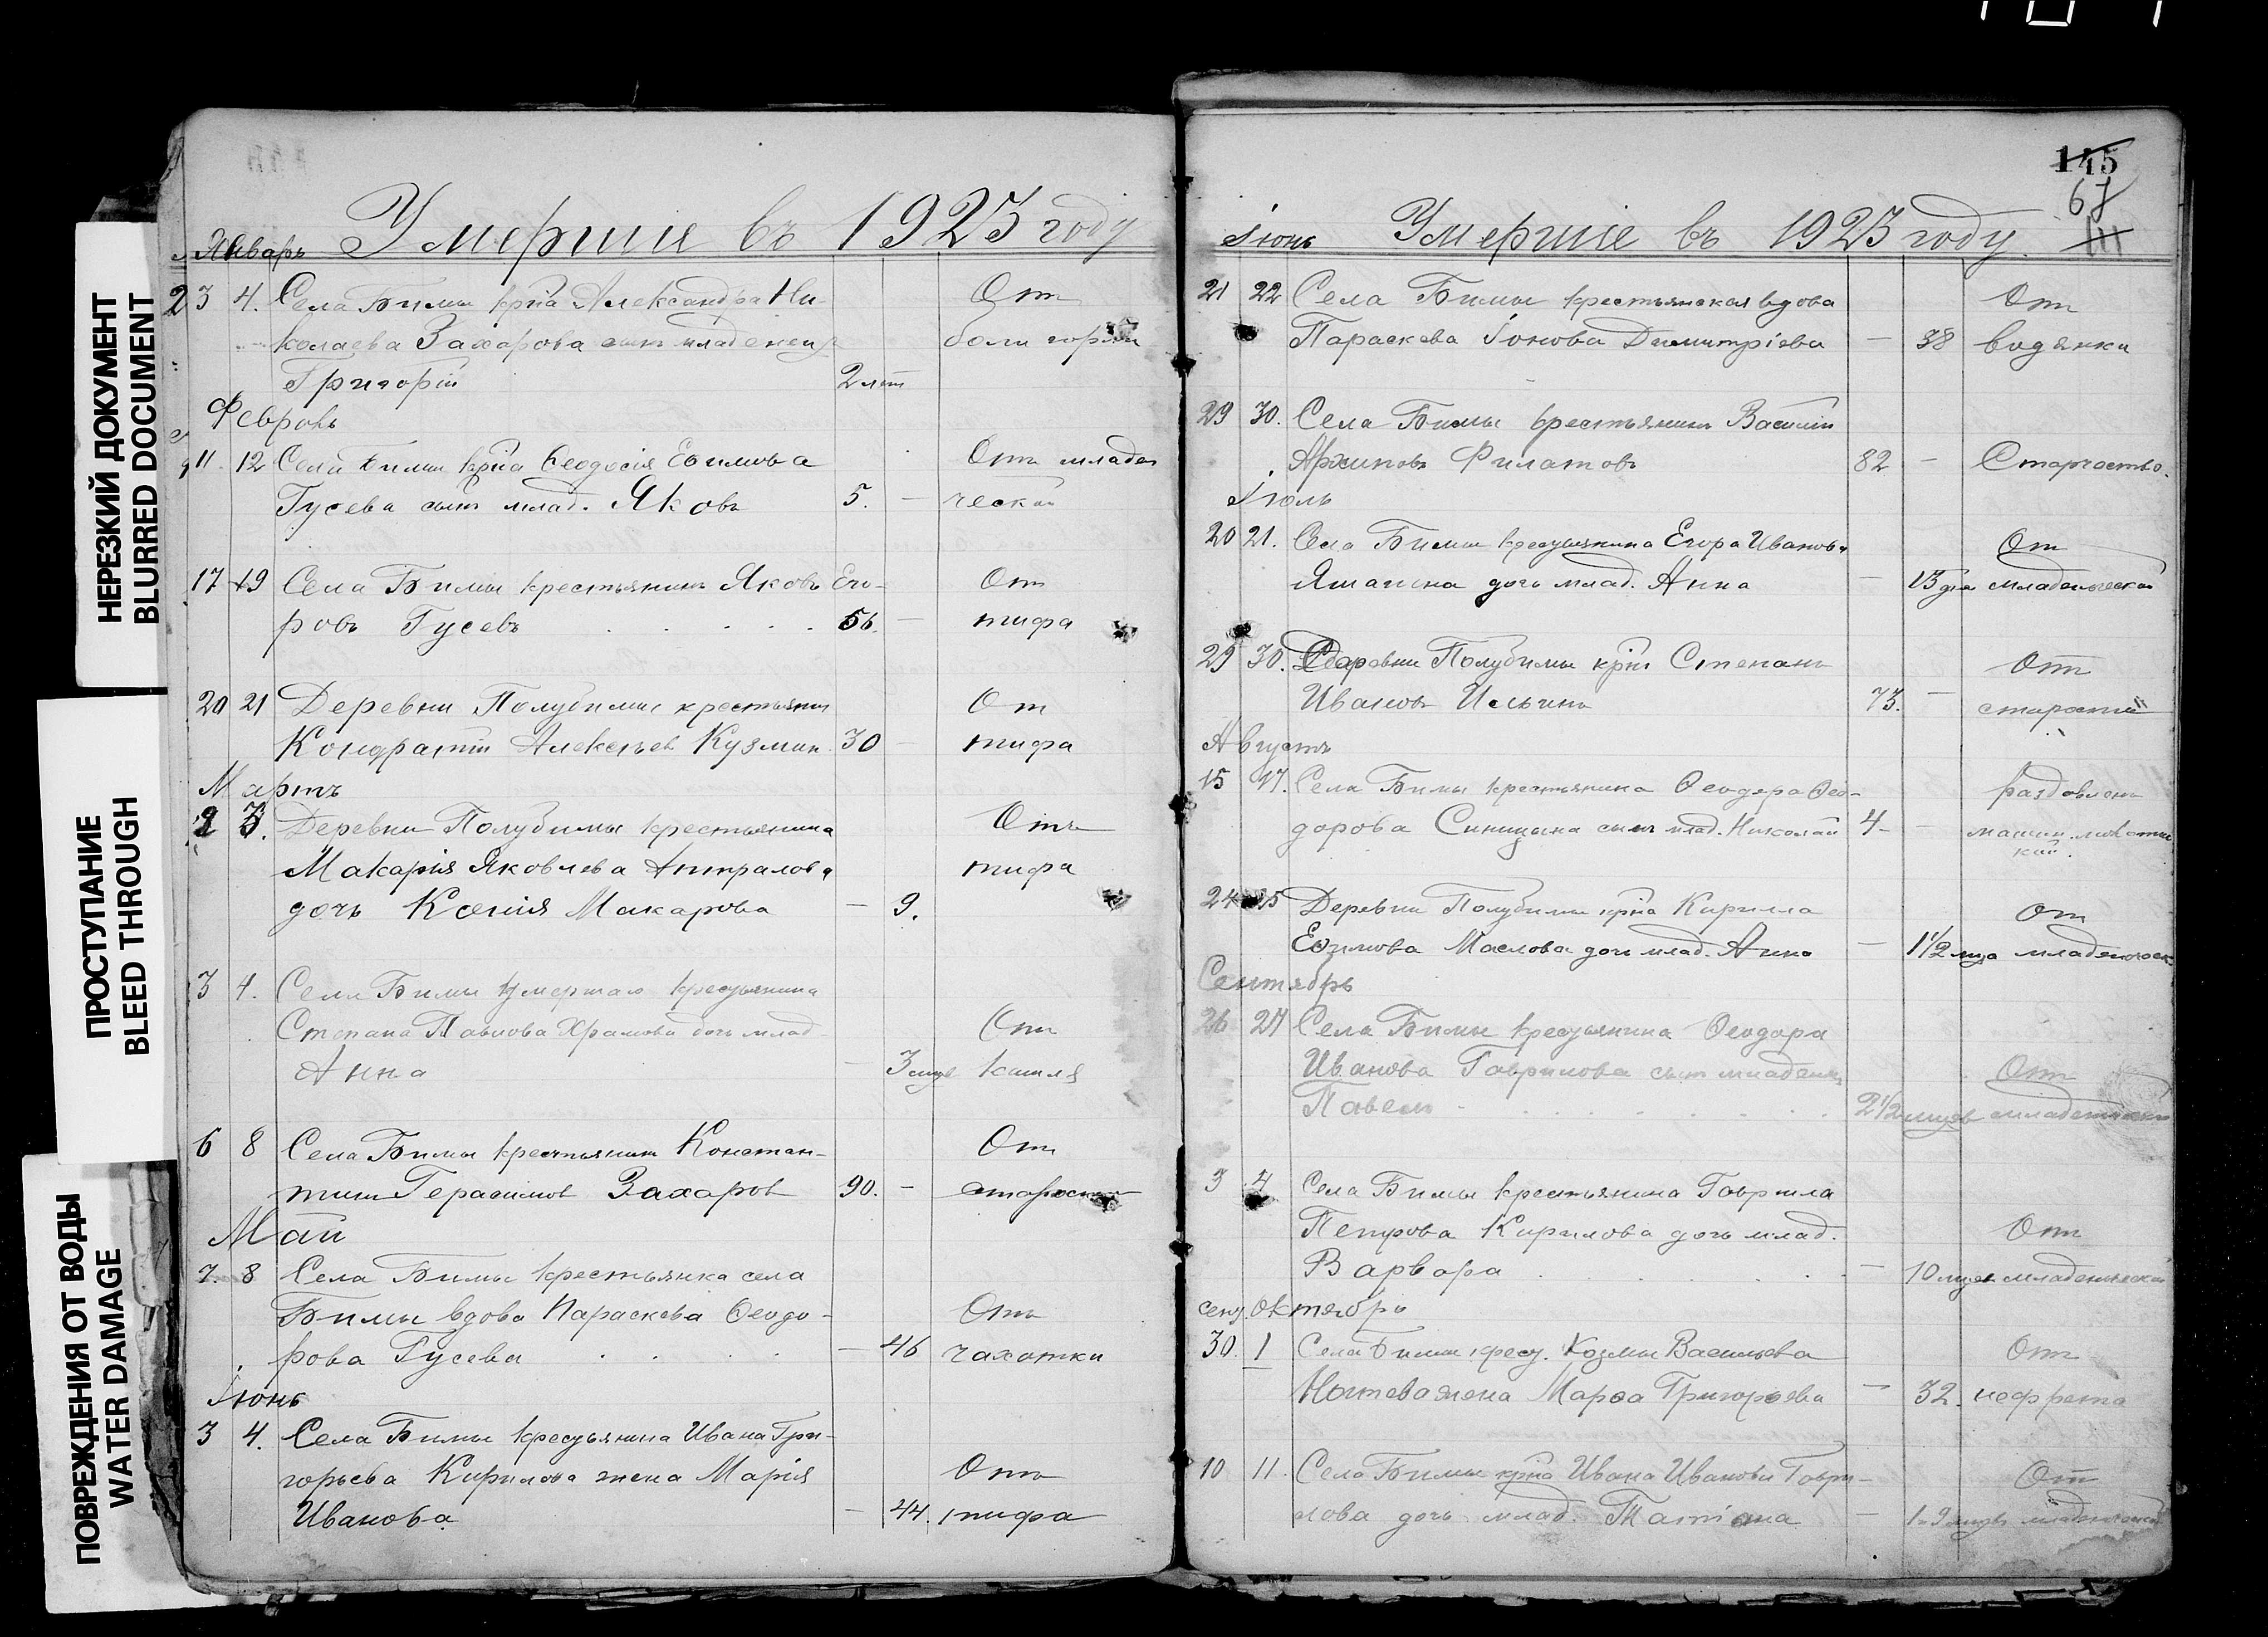 НЕРЕЗКИЙ ДОКУМЕНТ
BLURRED DOCUMENT
ПРОСТУПАНИЕ
BLEED THROUGH
ПОВРЕЖДЕНИЯ ОТ ВОДЫ
WATER DAMAGE
Умершіе въ 1923 году
Январь
23 4. Села Бимы кр-на Александра Ни От
колаева Захарова сынъ младенец боли горла
Григорій 2 лет
Февраль
11 12 Села Бимы кр-на Ѳеодосія Еѳимова Отъ младен
Гусева сынъ млад. Яковъ 5. — ческой
17 19 Села Бимы крестьянинъ Яковъ Его- От
ровъ Гусевъ 56. — тифа
20 21 Деревни Полубимы крестьянин От
Кондратій Алексѣев Кузмин 30 — тифа
Мартъ
2 3. Деревни Полубимы крестьянина Отъ
Макарія Яковлева дочь Ксенія Макарова — 9. тифа
3 4. Села Бимы умершаго крестьянина
Степана Павлова Храмова дочь млад. От
Анна — 3 мце кашля
6 8 Села Бимы крестьянин Констан- От
тин Герасимов Захаров 90. — старости
Май
7. 8 Села Бимы крестьянка села
Бимы вдова Параскева Ѳеодо- Отъ
рова Гусева — 46 чахотки
Іюнь
3 4. Села Бимы крестьянина Ивана Гри-
горьева Кирилова жена Марія Отъ
Иванова — 44. тифа
145
67
111
Іюнь Умершіе въ 1923 году.
21 22 Села Бимы крестьянская вдова От
Параскева Іонова Димитріева — 38 водянки
29 30. Села Бимы крестьянинъ Василій
Архиповъ Филатовъ 82 — Старчество.
Іюль
20 21. Села Бимы крестьянина Егора Иванова От
дочь млад. Анна — 13 дня младенческой
29 30. Деревни Полубимы кр-нъ Степанъ От
Ивановъ Ильинъ 73. — старости
Августъ
15 17. Села Бимы крестьянина Ѳеодора Ѳео- раздавленъ
дорова Синицына сынъ млад. Николай 4 — машин.
24 25 Деревни Полубимы кр-на Кирилла От
Еѳимова Маслова дочь млад. Анна — 1 1/2 мца младенческ
Сентябрь
26 27 Села Бимы крестьянина Ѳеодора
Иванова Гаврилова сынъ младенец От
Павелъ 2 1/2 мцев младенческой
3 4 Села Бимы крестьянина Гаврила
Петрова Кирилова дочь млад. От
Варвара — 10 мцев младенческой
сент. Октябрь
30. 1 Села Бимы крест. Козмы Васильева От
жена Марѳа Григорьева — 32. нефрета
10 11. Села Бимы кр-на Ивана Иванова Гаври- От
лова дочь млад. Татіана — младенческой